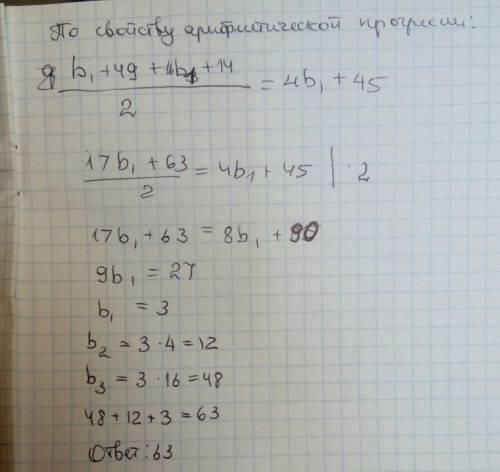 По свойству арифметической прогрессии:
b₁ + 49 + b₁ + 14 / 2 = 4b₁ + 45
17b₁ + 63 / 2 = 4b₁ + 45 | · 2
17b₁ + 63 = 8b₁ + 90
9b₁ = 27
b₁ = 3
b₂ = 3 · 4 = 12
b₃ = 3 · 16 = 48
48 + 12 + 3 = 63
Ответ: 63